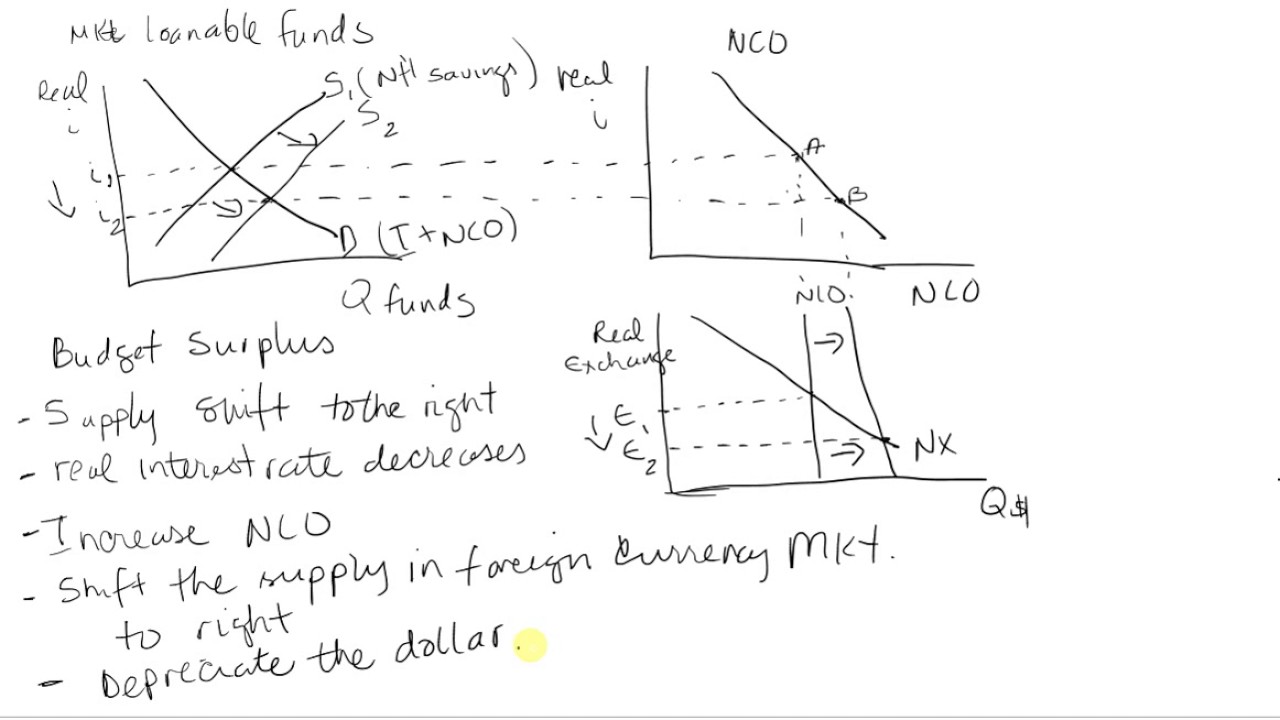 Mkt loanable funds
Real
i
S1 (Nt'l savings)
S2
i1
i2
D (I + NCO)
Q funds
NCO
real
i
A
B
NCO
NCO
Real
Exchange
E1
E2
NX
Q$
Budget Surplus
- Supply shift to the right
- real interest rate decreases
- Increase NCO
- Shift the supply in foreign currency Mkt.
to right
- Depreciate the dollar.